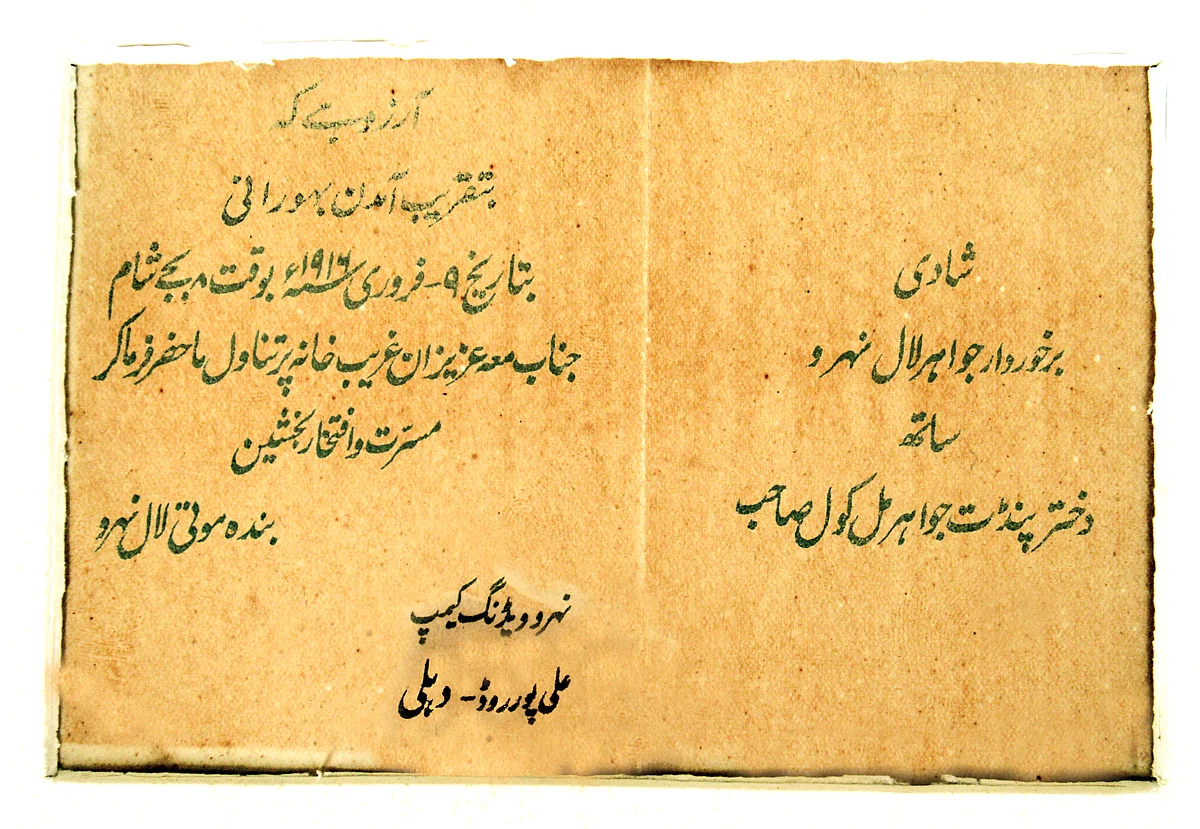 شادی
برخوردار جواہر لال نہرو
ساتھ
دختر پنڈت جواہر مل کول صاحب
آرزو ہے کہ
بتقریب آمدن بہورانی
بتاریخ ۹ - فروری سنہ ۱۹۱۶ء بوقت ۸ بجے شام
جناب معہ عزیزان غریب خانہ پر تناول ماحضر فرماکر
مسرّت و افتخار بخشیں
بندہ موتی لال نہرو
نہرو ویڈنگ کیمپ
علی پور روڈ - دہلی